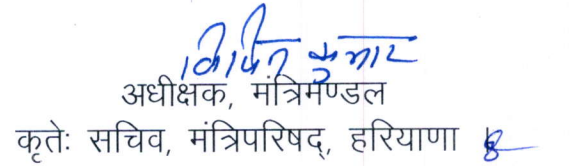 विपिन कुमार
अधीक्षक, मंत्रिमण्डल
कृतेः सचिव, मंत्रिपरिषद्, हरियाणा